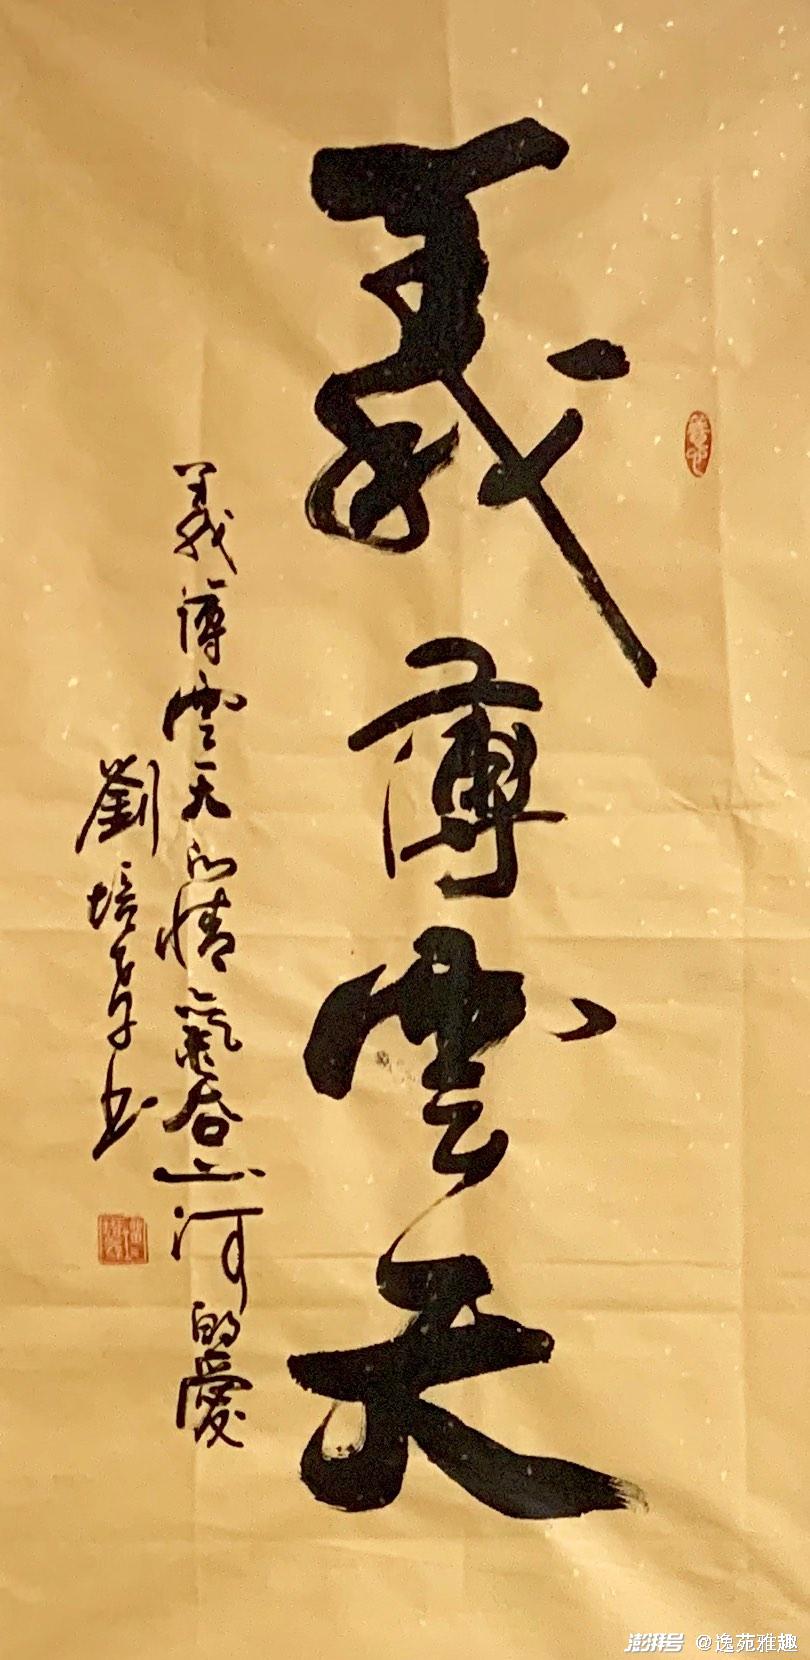 義薄雲天
義薄雲天的情氣吞山河的愛
劉培孝书
澎湃号 @逸苑雅趣